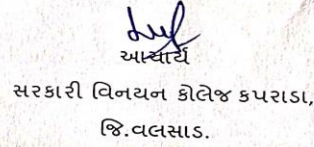 આચાર્ય
સરકારી વિનયન કોલેજ કપરાડા,
જિ.વલસાડ.